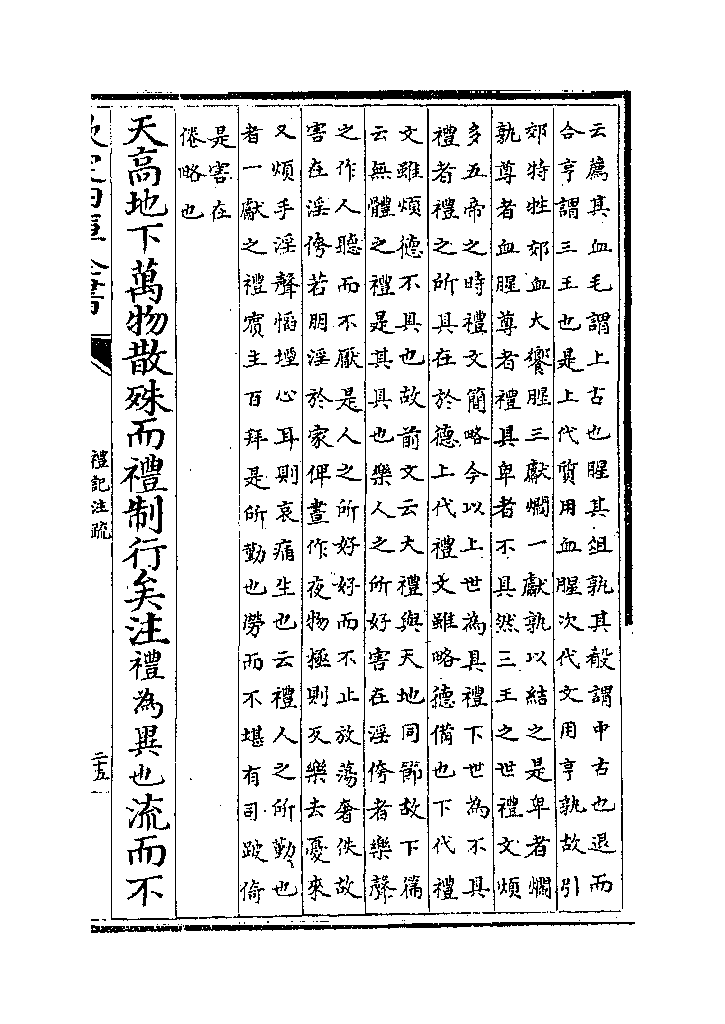 云薦其血毛謂上古也腥其俎孰其殽謂中古也退而
合亨謂三王也是上代質用血腥次代文用亨孰故引
郊特牲郊血大饗腥三獻爓一獻孰以結之是卑者爓
孰尊者血腥尊者禮具卑者不具然三王之世禮文煩
多五帝之時禮文簡略今以上世為具禮下世為不具
禮者禮之所具在於德上代禮文雖略德備也下代禮
文雖煩德不具也故前文云大禮與天地同節故下徧
云無體之禮是其具也樂人之所好害在淫侉者樂聲
之作人聽而不厭是人之所好好而不止放蕩奢佚故
害在淫侉若朋淫於家俾晝作夜物極則反樂去憂來
又煩手淫聲慆堙心耳則哀痛生也云禮人之所勤也
者一獻之禮賓主百拜是所勤也勞而不堪有司跛倚
是害在
倦略也
天高地下萬物散殊而禮制行矣注禮為異也流而不
欽定四庫全書
禮記注疏
二十五